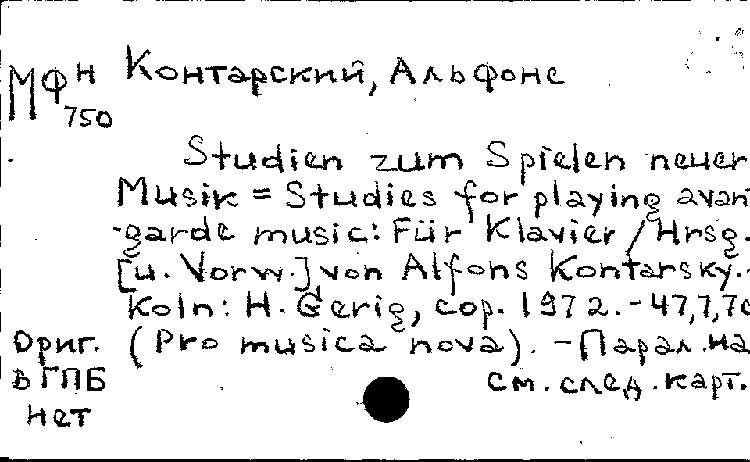 МФ Н 750
Контарский, Альфонс
Studien zum Spielen neuer
Musik = Studies for playing avan
-garde music: Für Klavier / Hrsg.
[u. Vorw.] von Alfons Kontarsky. -
Koln: H. Gerig, cop. 1972. - 47,7,7c
(Pro musica nova). - Парал. на
см. след. карт.
Ориг.
в ГПБ
нет